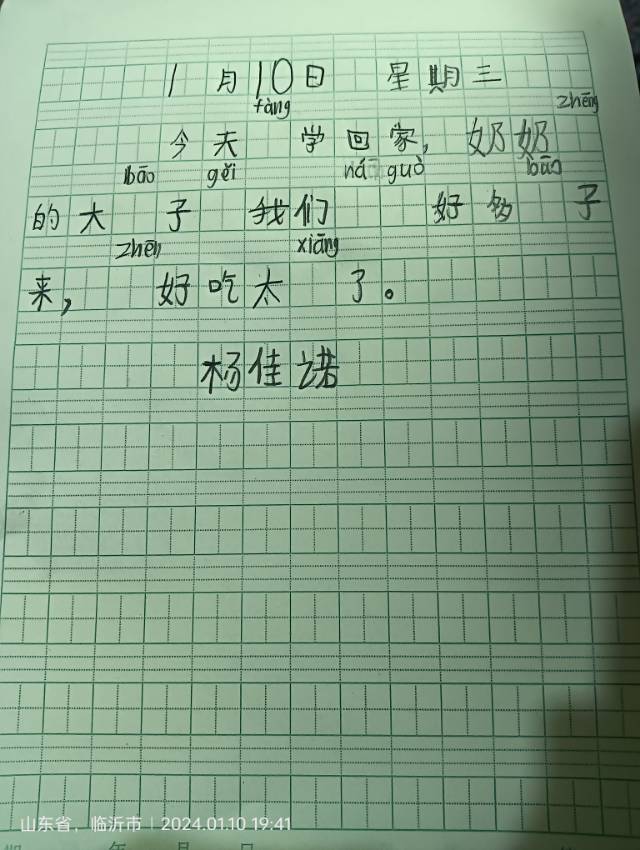 1月10日 星期三
fàng zhēng
今天 学回家，奶奶
bāo gěi ná guò bāo
的大 子 我们 好多 子
zhēn xiāng
来， 好吃太 了。
杨佳诺
山东省，临沂市 | 2024.01.10 19:41